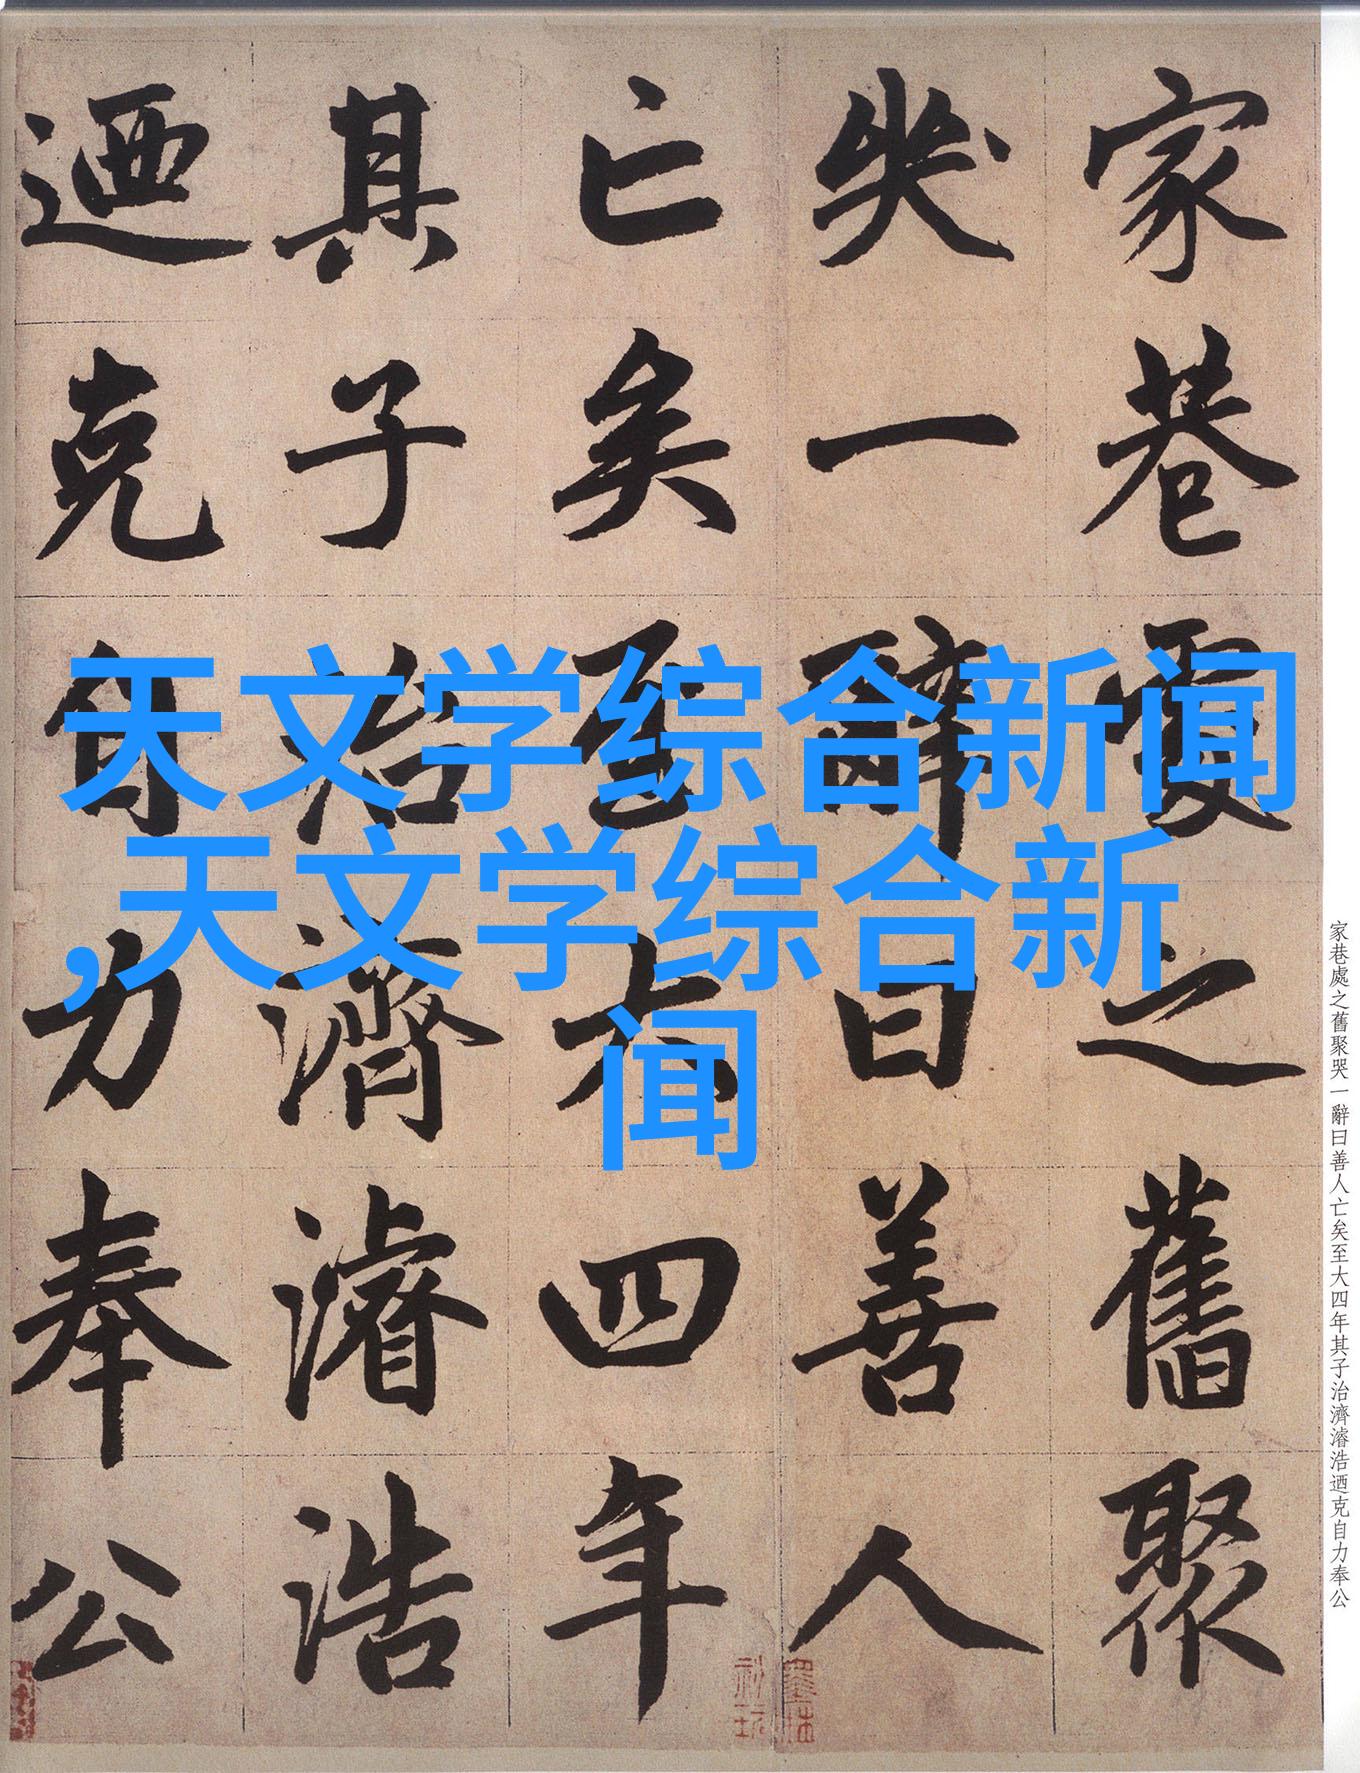 天文学综合新闻
,天文学综合新
闻
家巷處之舊聚
哭一辭曰善人
亡矣至大四年
其子治濟濬浩
迺克自力奉公
家巷處之舊聚哭一辭曰善人亡矣至大四年其子治濟濬浩迺克自力奉公